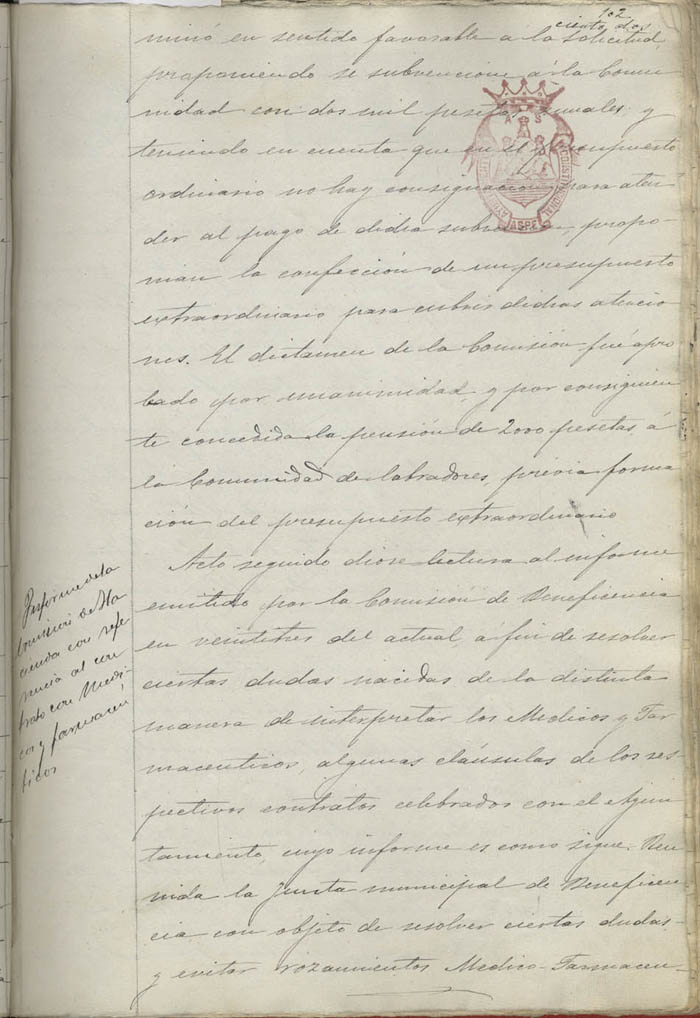 102
ciento dos
minó en sentido favorable a la solicitud
proponiendo se subvencione á la Comu
nidad con dos mil pesetas anuales, y
teniendo en cuenta que en el presupuesto
ordinario no hay consignación para aten
der al pago de dicha subvención propo-
nian la confección de un presupuesto
extraordinario para cubrir dichas atencio
nes. El dictamen de la Comisión fué apro
bado por unanimidad, y por consiguien
te concedida la pensión de 2000 pesetas á
la Comunidad de labradores, previa forma
ción del presupuesto extraordinario
Informe de la
Comisión de Ha
cienda con refe
rencia al con
trato con Medi-
cos y farmaceu
ticos
Acto seguido diose lectura al informe
emitido por la Comisión de Beneficencia
en veintitres del actual, á fin de resolver
ciertas dudas nacidas de la distinta
manera de interpretar los Medicos y Far
maceuticos, algunas cláusulas de los res
pectivos contratos celebrados con el Ayun
tamiento, cuyo informe es como sigue: Reu
nida la Junta municipal de Beneficen
cia con objeto de resolver ciertas dudas
y evitar rozamientos Medico-Farmaceu-
A S
ASPE